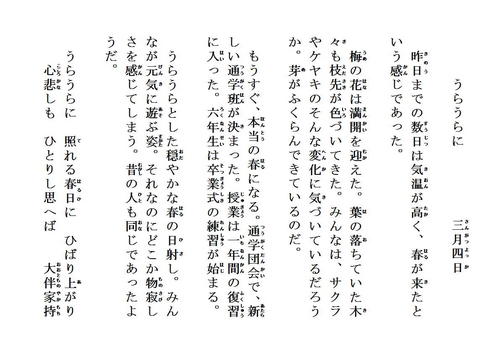 うらうらに　　　　　三月四日
昨日までの数日は気温が高く、春が来たと
いう感じであった。
梅の花は満開を迎えた。葉の落ちていた木
々も枝先が色づいてきた。みんなは、サクラ
やケヤキのそんな変化に気づいているだろう
か。芽がふくらんできているのだ。
もうすぐ、本当の春になる。通学団会で、新
しい通学班が決まった。授業は一年間の復習
に入った。六年生は卒業式の練習が始まる。
うらうらとした穏やかな春の日射し。みん
なが元気に遊ぶ姿。それなのにどこか物寂し
さを感じてしまう。昔の人も同じであったよ
うだ。
うらうらに　照れる春日に　ひばり上がり
心悲しも　ひとりし思へば　　大伴家持